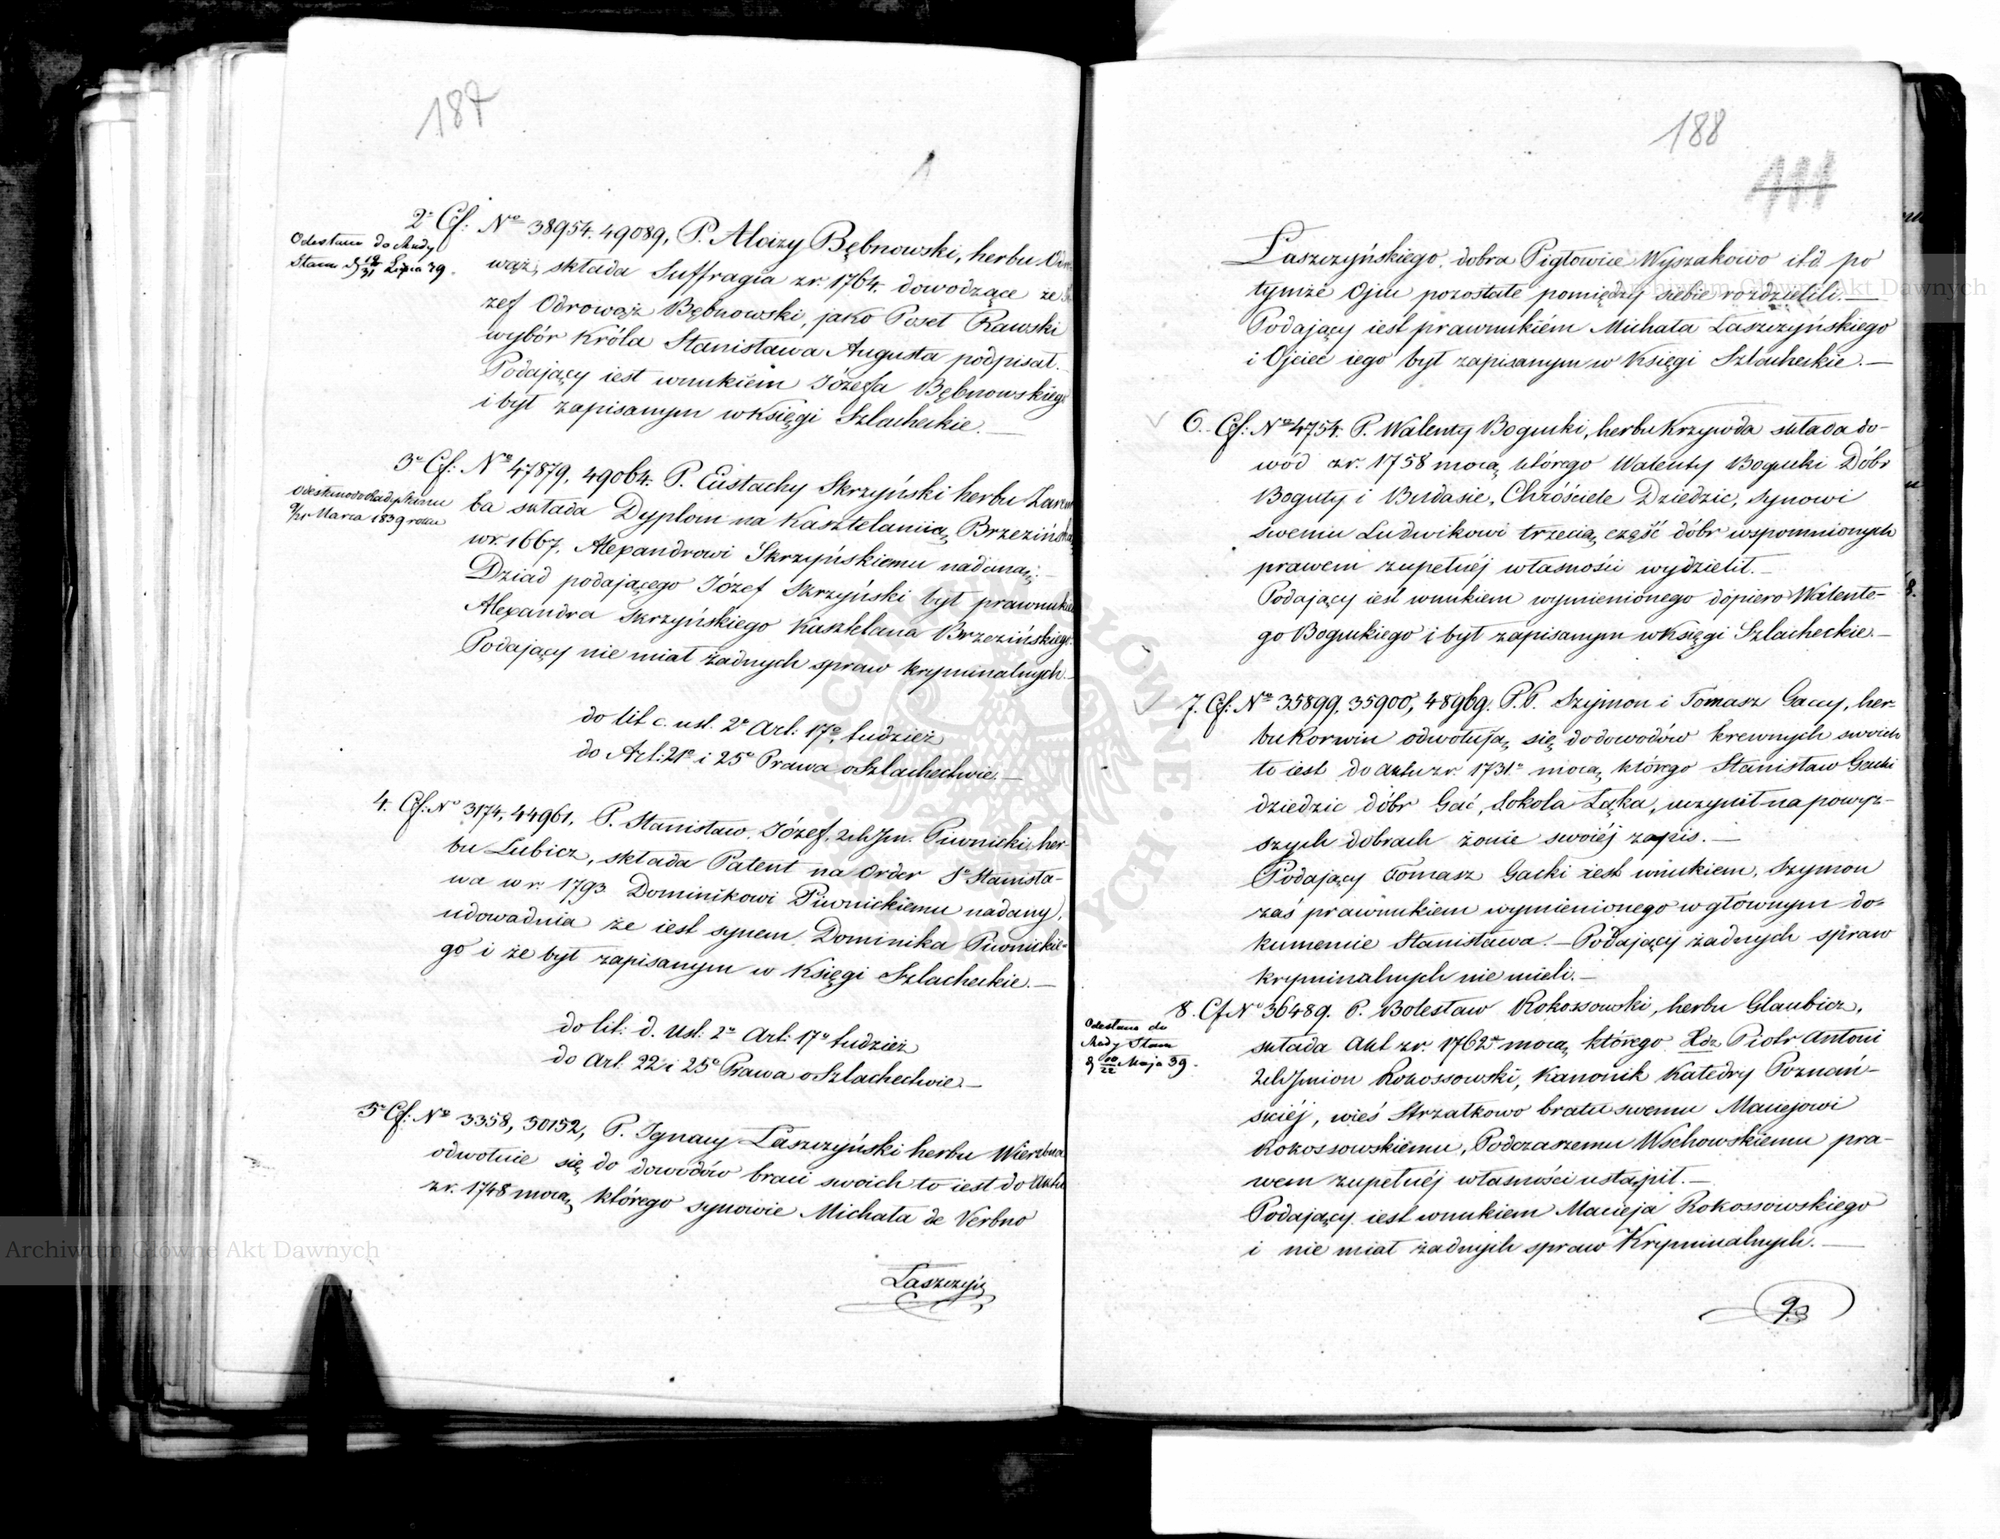 187
1
2º Cf: Nº 38954. 49089, P. Aloizy Bębnowski, herbu Odro
wąż, składa Suffragia z r. 1764. dowodzące że
zef Odrowąż Bębnowski, jako Poseł Rawski
wybór Króla Stanisława Augusta podpisał.
Podający iest wnukiem Józefa Bębnowskiego
i był zapisanym w Księgi Szlacheckie.—
Odesłano do Rady
Stanu d 19/31 Lipca 39.
3º Cf: Nº 47879, 49064. P. Eustachy Skrzyński herbu Zarem
ba składa Dyplom na Kasztelaniią Brzezińską
w r. 1667, Alexandrowi Skrzyńskiemu nadaną;—
Dziad podającego Józef Skrzyński był prawnukiem
Alexandra Skrzyńskiego Kasztelana Brzezińskiego.
Podający nie miał żadnych spraw kryminalnych.—
Marca 1839 roku
do lit c. ust. 2º Art: 17º, tudzież
do Art: 21º i 25º Prawa o Szlachectwie.—
4. Cf: Nº 3174, 44961, P. Stanisław, Józef, 2ch Jm. Piwnicki, her-
bu Lubicz, składa Patent na Order Sº Stanisła-
wa w r. 1793 Dominikowi Piwnickiemu nadany,
udowadnia że iest synem Dominika Piwnickie-
go i że był zapisanym w Księgi Szlacheckie.—
do lit: d. ust: 2º Art: 17º tudzież
do Art. 22 i 25º Prawa o Szlachectwie—
5º Cf: Nº 3358, 50152, P. Ignacy Łaszczyński herbu Wierzbna
odwołuie się do dowodów braci swoich to iest do Aktu
z r. 1748 mocą którego synowie Michała de Verbno
Łaszczyń
188
111
Łaszczyńskiego dobra Pigłowice Wyszakowo itd po
tymże Ojcu pozostałe pomiędzy siebie rozdzielili.—
Podający iest prawnukiem Michała Łaszczyńskiego
i Ojciec iego był zapisanym w Księgi Szlacheckie.—
6. Cf: Nº 4754. P. Walenty Bogucki, herbu Krzywda składa do-
wód z r. 1758 mocą którego Walenty Bogucki Dóbr
Boguty i Burdasie, Chróściele Dziedzic, synowi
swemu Ludwikowi trzecią część dóbr wspomnionych
prawem zupełnéj własności wydzielił.—
Podający iest wnukiem wymienionego dopiero Walente-
go Boguckiego i był zapisanym w Księgi Szlacheckie.—
7. Cf: Nº 35899. 35900, 48969. P.P. Szymon i Tomasz Gaccy, her-
bu Korwin odwołują się do dowodów krewnych swoich
to iest do aktu z r. 1731º mocą którego Stanisław Gacki
dziedzic dóbr Gać, Sokola Łąka, uczynił na powyż-
szych dobrach żonie swoiéj zapis.—
Podający Tomasz Gacki iest wnukiem, Szymon
zaś prawnukiem wymienionego w głównym do-
kumencie Stanisława.— Podający żadnych spraw
kryminalnych nie mieli.—
8. Cf Nº 36489. P. Bolesław Rokossowski, herbu Glaubicz,
składa Akt z r. 1762º mocą którego Xdz Piotr Antoni
2ch Jmion Rokossowski, Kanonik Katedry Poznań-
skiéj, wieś Strzałkowo bratu swemu Maciejowi
Rokossowskiemu, Podczaszemu Wschowskiemu pra-
wem zupełnéj własności ustąpił.—
Podający iest wnukiem Macieja Rokossowskiego
i nie miał żadnych spraw Kryminalnych.—
Odesłano do
Rady Stanu
d 10/22 Maja 39.
Archiwum Główne Akt Dawnych
Archiwum Główne Akt Dawnych